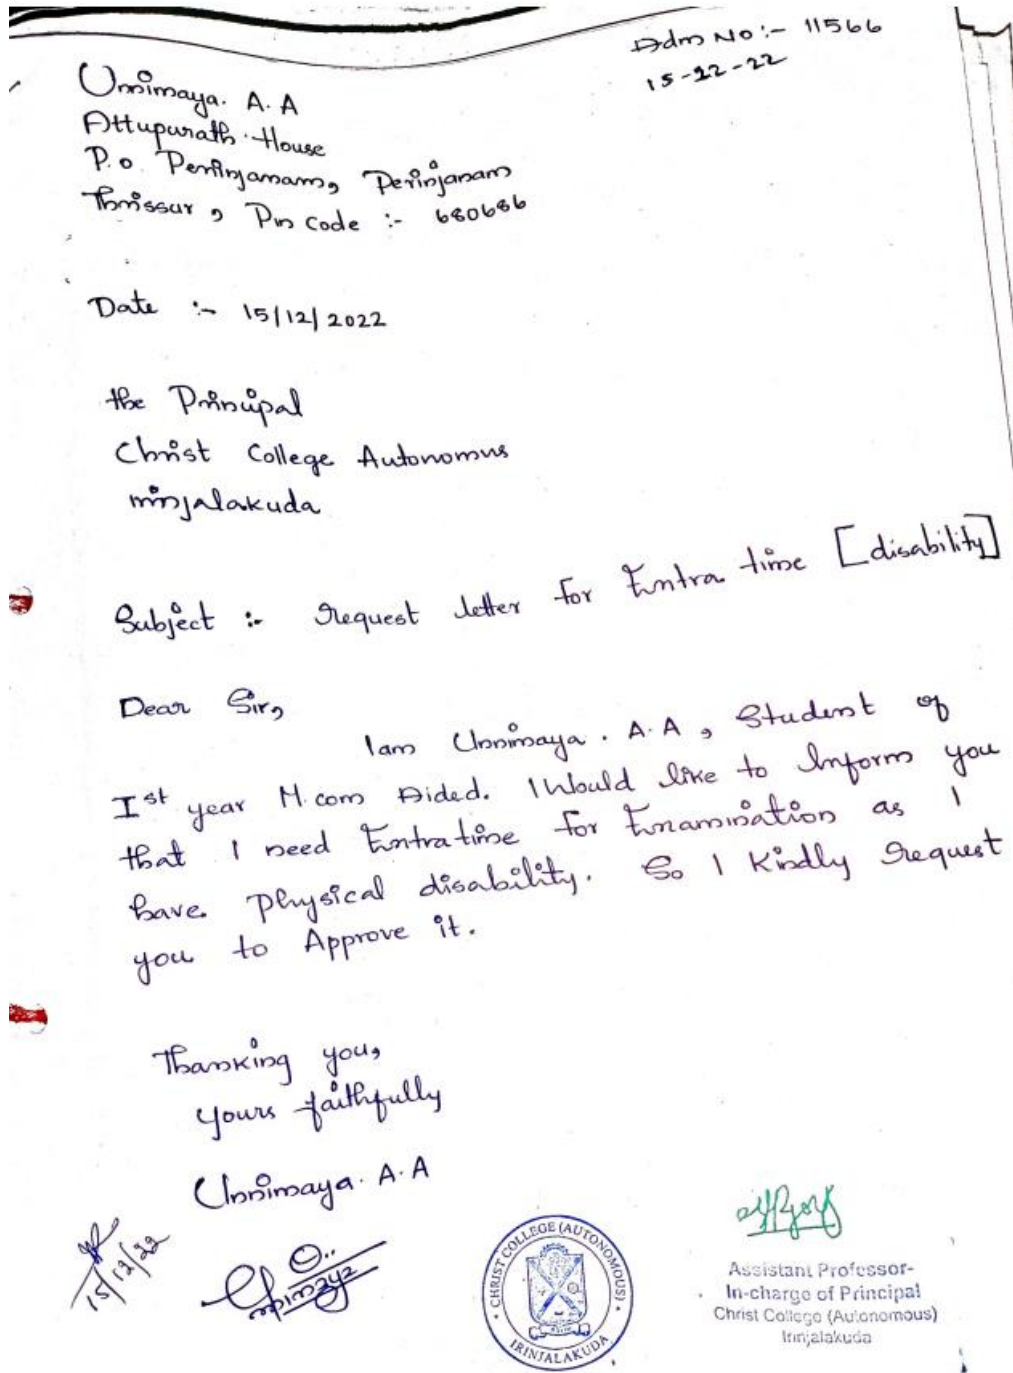 Adm No :- 11566
15-12-22
Unnimaya. A. A
Attupurath House
P. o Perinjanam, Perinjanam
Thrissur, Pin code :- 680686
Date :- 15/12/2022
the Principal
Christ College Autonomus
irinjalakuda
Subject :- Request letter for Extra time [disability]
Dear Sir,
I am Unnimaya. A. A, Student of
Ist year M.com Aided. I Would like to Inform you
that I need Extra time for Examination as I
have Physical disability. So I Kindly Request
you to Approve it.
Thanking you,
yours faithfully
Unnimaya. A. A
15/12/22
CHRIST COLLEGE (AUTONOMOUS)
IRINJALAKUDA
Assistant Professor-
In-charge of Principal
Christ College (Autonomous)
Irinjalakuda